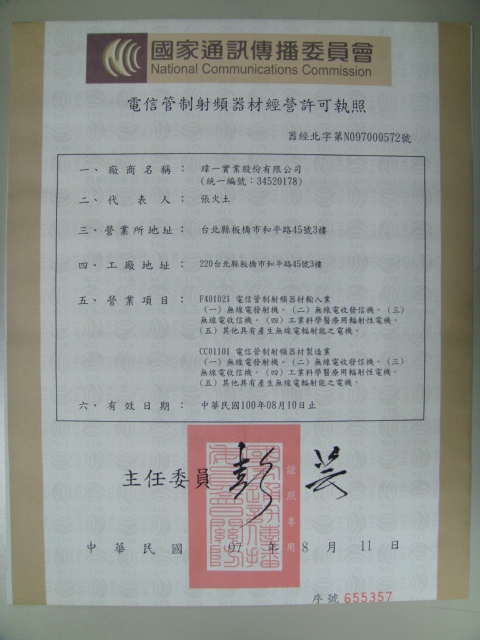 國家通訊傳播委員會
National Communications Commission
電信管制射頻器材經營許可執照
器經北字第N097000572號
一、廠商名稱：瑋一實業股份有限公司
(統一編號：34520178)
二、代表人：張火土
三、營業所地址：台北縣板橋市和平路45號3樓
四、工廠地址：220台北縣板橋市和平路45號3樓
五、營業項目：F401021 電信管制射頻器材輸入業
（一）無線電發射機。（二）無線電收發信機。（三）
無線電收信機。（四）工業科學醫療用輻射性電機。
（五）其他具有產生無線電輻射能之電機。
CC01101 電信管制射頻器材製造業
（一）無線電發射機。（二）無線電收發信機。（三）
無線電收信機。（四）工業科學醫療用輻射性電機。
（五）其他具有產生無線電輻射能之電機。
六、有效日期：中華民國100年08月10日止
主任委員 彭芸
證照專用
中華民國 97 年 8 月 11 日
序號 655357